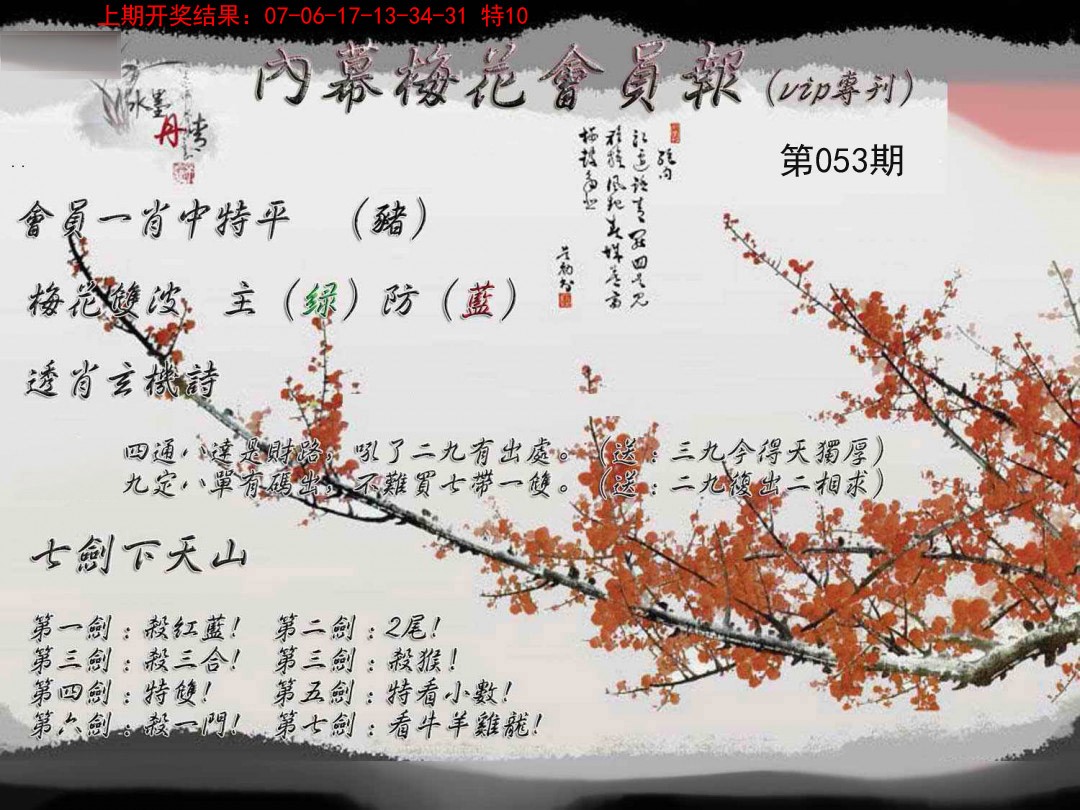 上期开奖结果: 07-06-17-13-34-31 特10
內幕梅花會員報(vip專刊)
水墨
丹青
第053期
會員一肖中特平 (豬)
梅花雙波 主(绿)防(藍)
透肖玄機詩
四通八達是財路，吼了二九有出處。(送:三九今得天獨厚)
九定八單有碼出，不難買七帶一雙。(送:二九復出二相求)
七劍下天山
第一劍:殺紅藍! 第二劍:2尾!
第三劍:殺三合! 第三劍:殺猴!
第四劍:特雙! 第五劍:特看小數!
第六劍:殺一門! 第七劍:看牛羊雞龍!